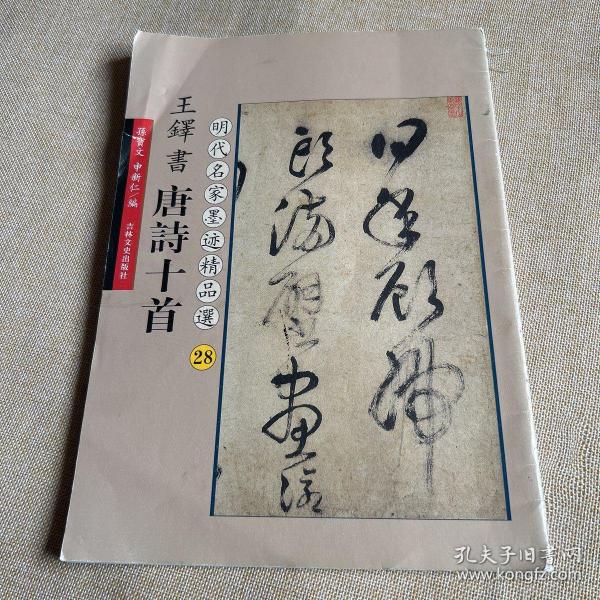 王鐸書 唐詩十首
明代名家墨迹精品選
28
孫寶文 申新仁/編
吉林文史出版社
何年顧虎
頭滿壁畫
孔夫子旧书网
kongfz.com